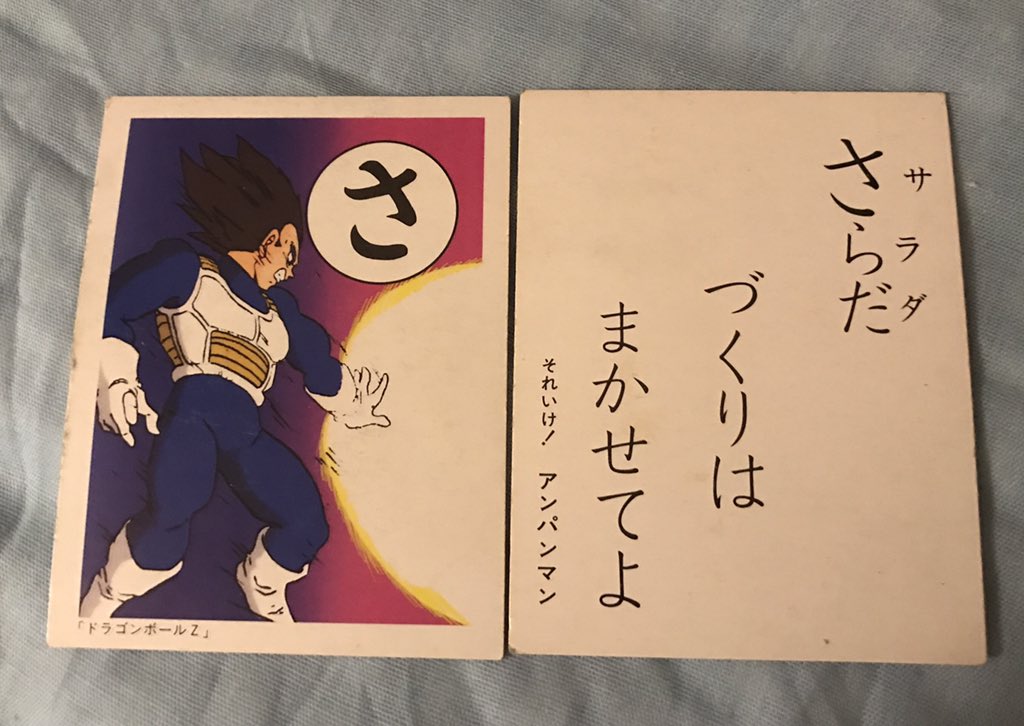 さ
「ドラゴンボールZ」
さらだ
サラダ
づくりは
まかせてよ
それいけ！ アンパンマン